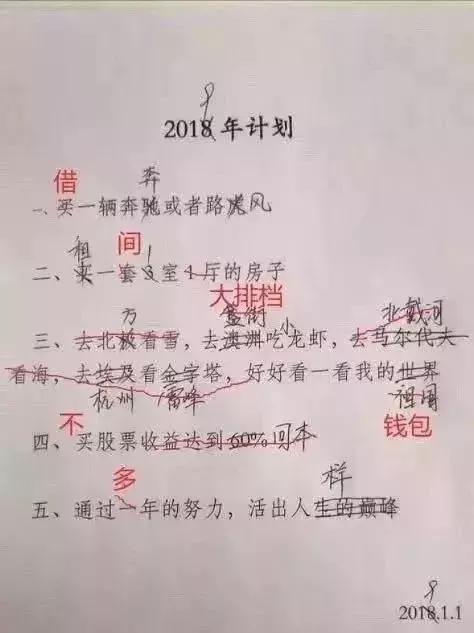 9
2018年计划
借 奔
一、买一辆奔驰或者路虎风
租 间 1
二、买一套3室4厅的房子
大排档
方 簋街 小 北戴河
三、去北极看雪，去澳洲吃龙虾，去马尔代夫
看海，去埃及看金字塔，好好看一看我的世界
杭州 雷峰 祖国
不 钱包
四、买股票收益达到60%回本
多 样
五、通过一年的努力，活出人生的巅峰
9
2018.1.1